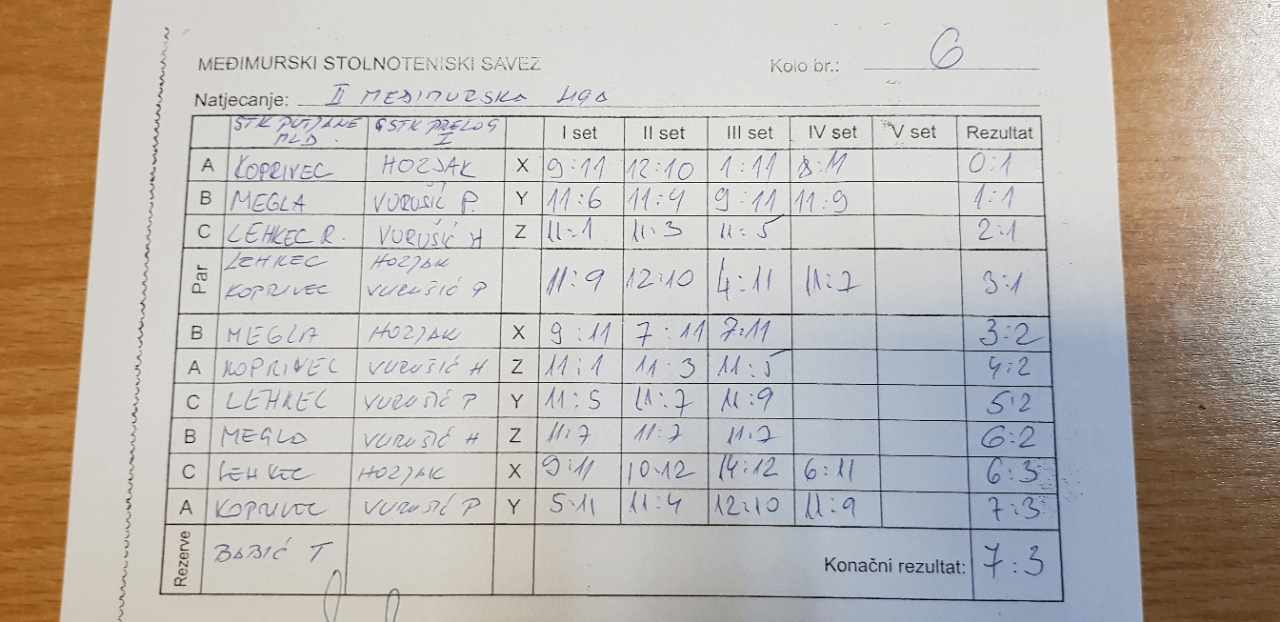 MEĐIMURSKI STOLNOTENISKI SAVEZ Kolo br.: 6
Natjecanje: II MEĐIMURSKA LIGA
STK PUTJANE MLD. STK PRELOG I I set II set III set IV set V set Rezultat
A KOPRIVEC HOZJAK X 9:11 12:10 1:11 8:11 0:1
B MEGLA VURUŠIĆ P. Y 11:6 11:4 9:11 11:9 1:1
C LEHKEC R. VURUŠIĆ H Z 11:1 11:3 11:5 2:1
Par LEHKEC HOZJAK
KOPRIVEC VURUŠIĆ P 11:9 12:10 4:11 11:7 3:1
B MEGLA HOZJAK X 9:11 7:11 7:11 3:2
A KOPRIVEC VURUŠIĆ H Z 11:1 11:3 11:5 4:2
C LEHKEC VURUŠIĆ P Y 11:5 11:7 11:9 5:2
B MEGLA VURUŠIĆ H Z 11:7 11:7 11:7 6:2
C LEHKEC HOZJAK X 9:11 10:12 14:12 6:11 6:3
A KOPRIVEC VURUŠIĆ P Y 5:11 11:4 12:10 11:9 7:3
Rezerve BABIĆ T Konačni rezultat: 7:3